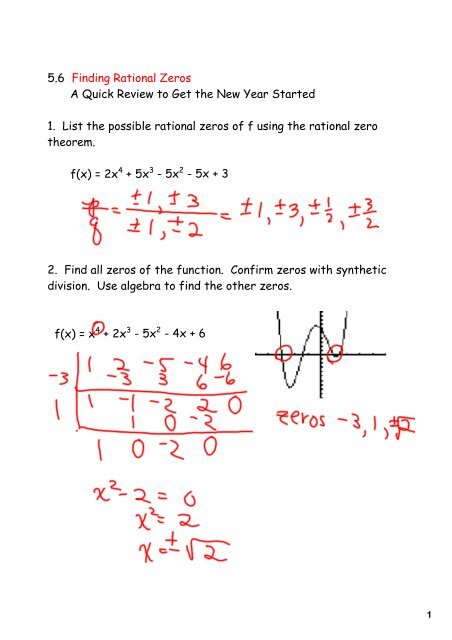 5.6 Finding Rational Zeros
A Quick Review to Get the New Year Started
1. List the possible rational zeros of f using the rational zero
theorem.
f(x) = 2x⁴ + 5x³ - 5x² - 5x + 3
p/q = ±1, ±3 / ±1, ±2 = ±1, ±3, ±1/2, ±3/2
2. Find all zeros of the function. Confirm zeros with synthetic
division. Use algebra to find the other zeros.
f(x) = x⁴ + 2x³ - 5x² - 4x + 6
-3 | 1 2 -5 -4 6
-3 3 6 -6
1 | 1 -1 -2 2 0
1 0 -2
1 0 -2 0
zeros -3, 1, ±√2
x² - 2 = 0
x² = 2
x = ±√2
1